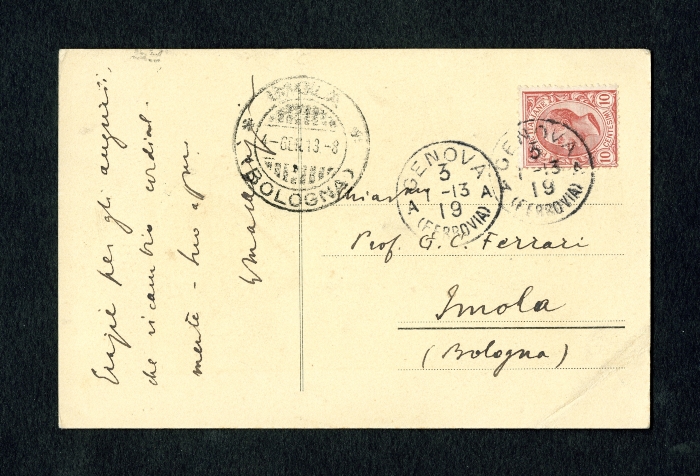 Grazie per gli auguri,
che ricambio cordial-
mente - Suo aff.mo
IMOLA
4-GEN.13-8
(BOLOGNA)
GENOVA
3
1-13
A A
19
(FERROVIA)
GENOVA
3
1-13
A A
19
(FERROVIA)
10 CENTESIMI 10
Chiarmo
Prof. G. C. Ferrari
Imola
(Bologna)